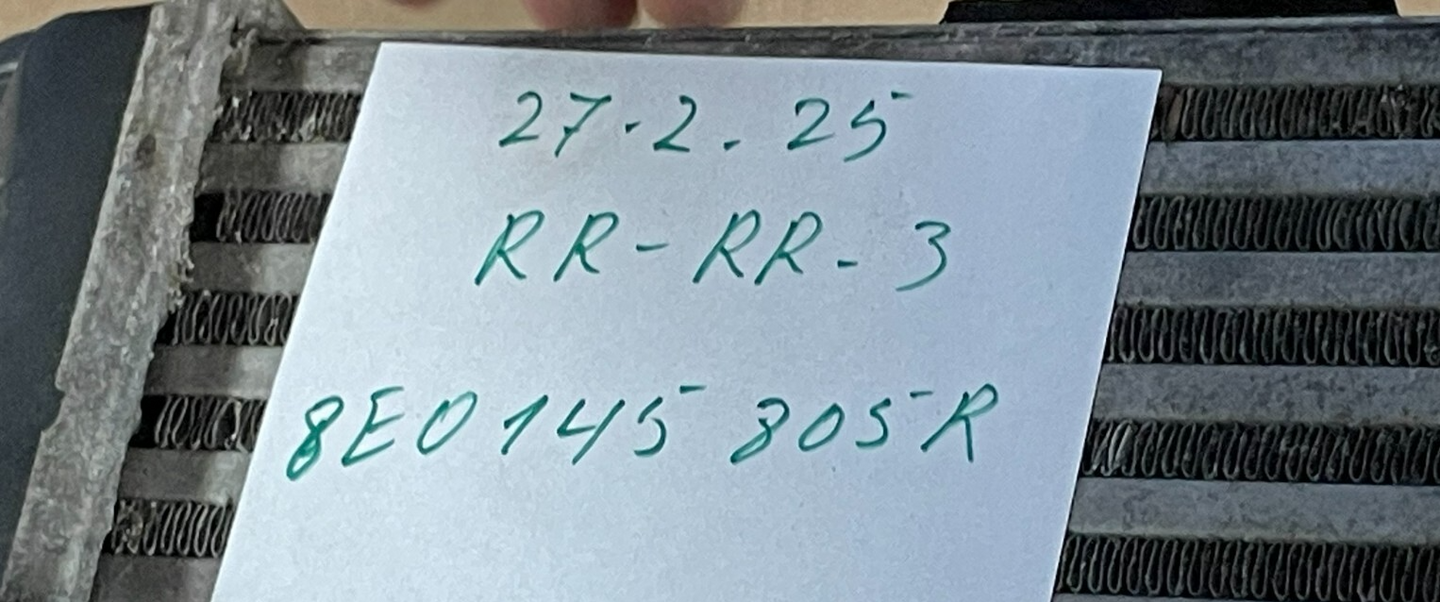 27.2.25
RR-RR-3
8E0 145 805R